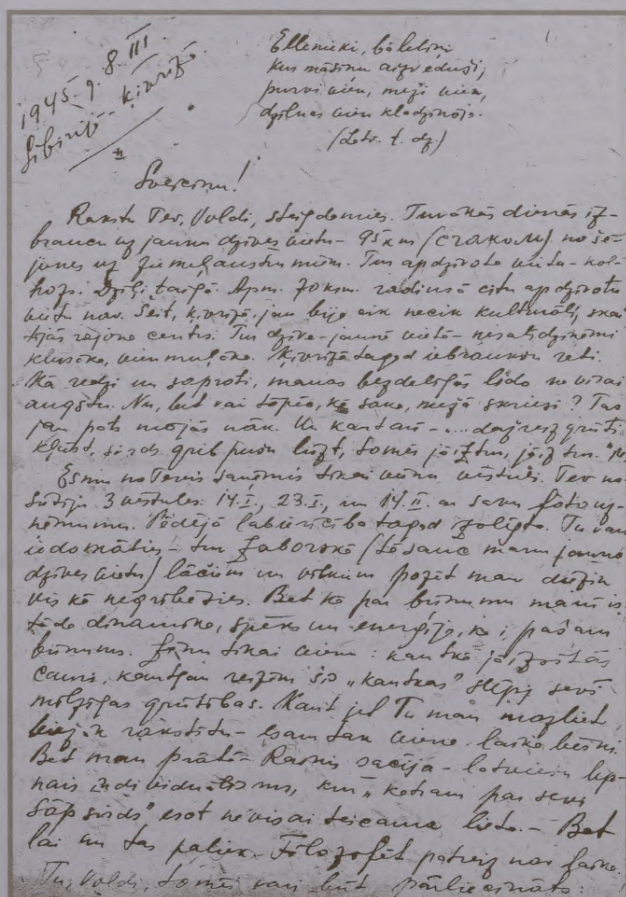 1945. g. 8. III
Sibirijā - Ķivrijā
Ellenieki, bāleliņi
Kur māsiņu aizvedusi,
purvi vien, meži vien,
dziļas vien
(Latv. t. dz.)
Sveicinu!
Rakstu Tev, Voldi, steigdamies. Tuvākās dienās iz-
braucu uz jaunu dzīves vietu - 95 km no še-
jienes uz ziemeļaustrumiem. Tur apdzīvota vieta - kol-
hozs. Dziļi taigā. Apm. 70 km. radiusā citu apdzīvotu
vietu nav. Šeit, Ķivrijā, jau bija cik necik kulturāli, skai
tījās rajona centrs. Tur dzīve - jaunā vietā - nesalīdzināmi
klusāka, vienmuļāka. Ķivrijā tagad iebraukšu reti.
Kā redzi un saproti, manas bezdelīgas lido ne visai
augstu. Nu, bet vai tāpēc, kā saka, mežā skriesi? Tas
jau pats mājās nāk. Un kaut arī - ... dažreiz grūti
kļūst, sirds grib pušu lūzt, tomēr jāiztur, jāiztur.
Esmu no Tevis saņēmis tikai vienu vēstuli. Tev no-
sūtīju 3 vēstules: 14.I, 23.I, un 14.II. ar savu fotouz-
ņēmumu. Pēdējā labierīcība tagad zaļota. Tu vari
iedomāties - tur Zaborskā (tā sauc manu jauno
dzīves vietu) lāčiem un vilkiem pozēt man diezin
vis kā negribēsies. Bet kā par brīnumu manī ir
tāda dinamika, spēks un enerģija, ka i pašam
brīnums. Zinu tikai vienu: kaut kā jāizsitas
cauri, kaut gan reizēm šis „kautkas" slēpj sevī
milzīgas grūtības. Kaut jel Tu man mazliet
biežāk rakstītu - esam tak viena laika bērni.
Bet man prātā - Rainis sacīja - latviešu lep-
nais individuālisms, kur „katram par sevi
sāp sirds" esot ne visai teicama lieta. - Bet
lai nu tas paliek. Filozofēt patreiz nav laika.
Tu, Voldi, tomēr vari būt pārliecināts: